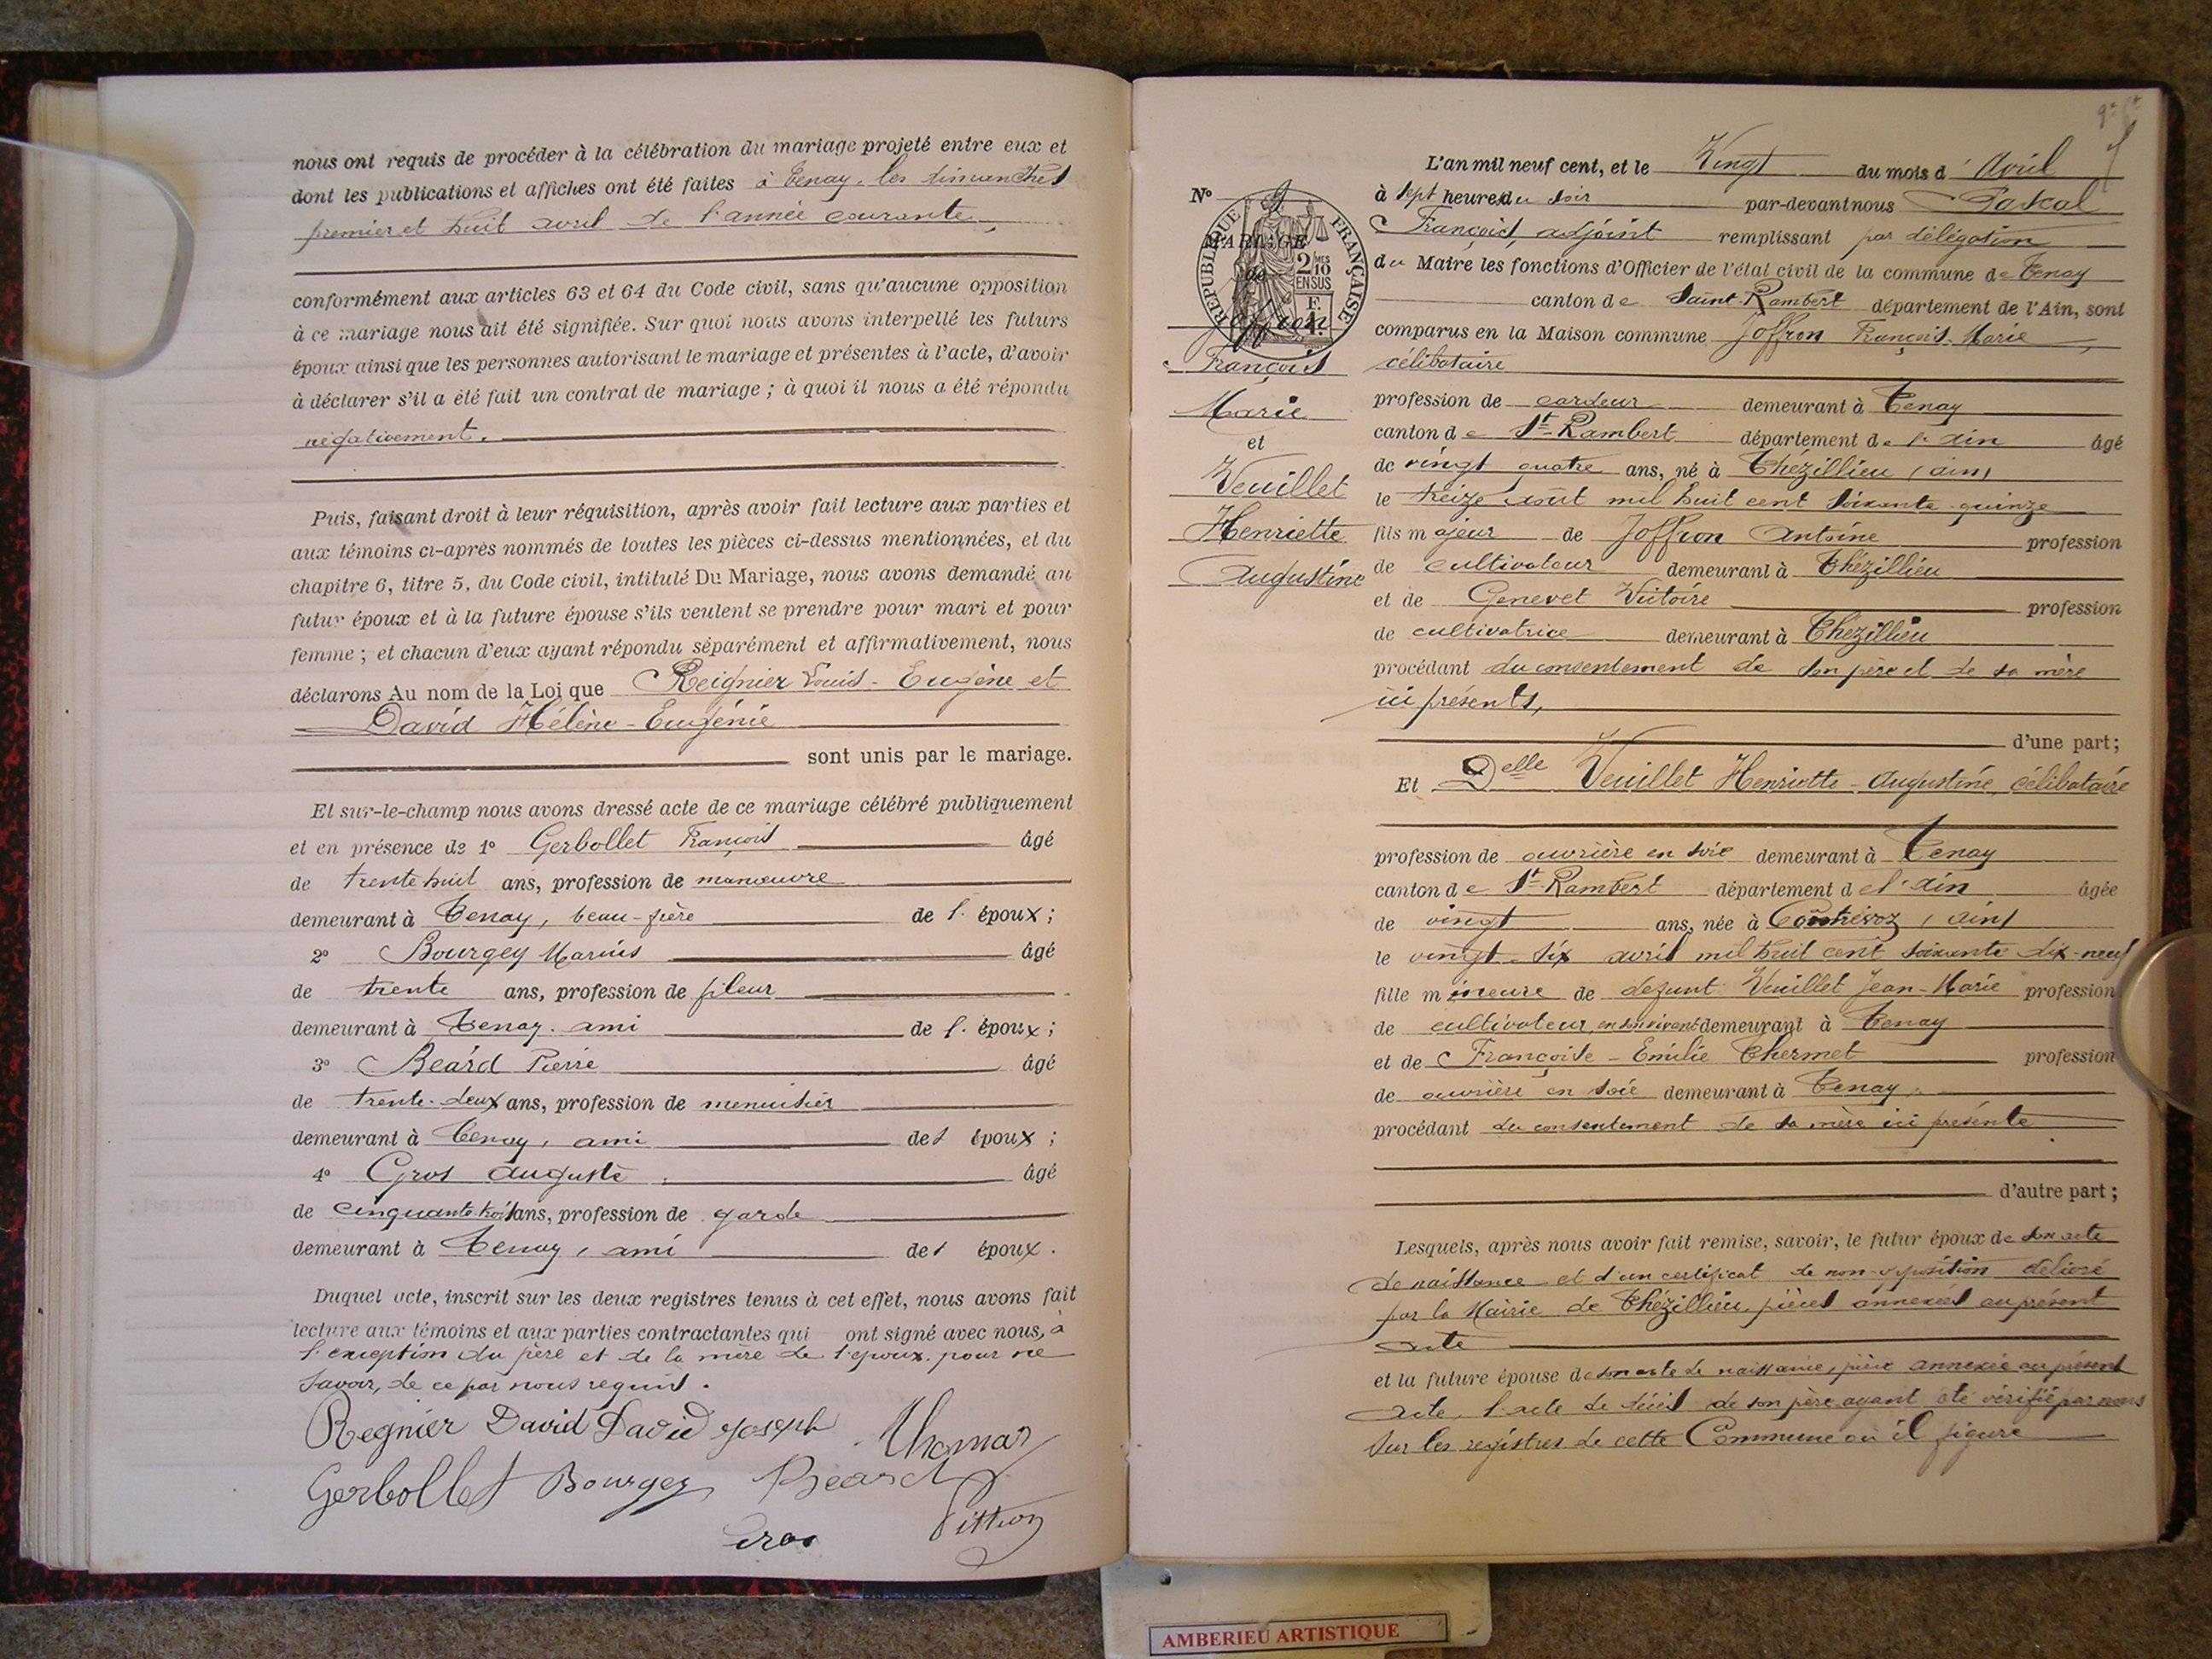 nous ont requis de procéder à la célébration du mariage projeté entre eux et
dont les publications et affiches ont été faites à Tenay, les dimanches
premier et huit avril de l'année courante,
conformément aux articles 63 et 64 du Code civil, sans qu'aucune opposition
à ce mariage nous ait été signifiée. Sur quoi nous avons interpellé les futurs
époux ainsi que les personnes autorisant le mariage et présentes à l'acte, d'avoir
à déclarer s'il a été fait un contrat de mariage ; à quoi il nous a été répondu
négativement.
Puis, faisant droit à leur réquisition, après avoir fait lecture aux parties et
aux témoins ci-après nommés de toutes les pièces ci-dessus mentionnées, et du
chapitre 6, titre 5, du Code civil, intitulé Du Mariage, nous avons demandé au
futur époux et à la future épouse s'ils veulent se prendre pour mari et pour
femme ; et chacun d'eux ayant répondu séparément et affirmativement, nous
déclarons Au nom de la Loi que Reignier Louis-Eugène et
David Hélène-Eugénie
sont unis par le mariage.
Et sur-le-champ nous avons dressé acte de ce mariage célébré publiquement
et en présence de 1° Gerbollet François âgé
de trente huit ans, profession de manœuvre
demeurant à Tenay, beau-frère de l' époux ;
2° Bourgey Marius âgé
de trente ans, profession de fileur
demeurant à Tenay. ami de l' époux ;
3° Béard Pierre âgé
de trente-deux ans, profession de menuisier
demeurant à Tenay, ami de l' époux ;
4° Gros Auguste. âgé
de cinquante trois ans, profession de garde
demeurant à Tenay, ami de l' époux.
Duquel acte, inscrit sur les deux registres tenus à cet effet, nous avons fait
lecture aux témoins et aux parties contractantes qui ont signé avec nous, à
l'exception du père et de la mère de l'époux. pour ne
savoir, de ce par nous requis.
Regnier David David Joseph Thomas
Gerbollet Bourgey Beard
Gros Pittion
L'an mil neuf cent, et le Vingt du mois d' Avril
N° à sept heures du soir par-devant nous Pascal
François, adjoint remplissant par délégation
du Maire les fonctions d'Officier de l'état civil de la commune de Tenay
canton de Saint-Rambert département de l'Ain, sont
comparus en la Maison commune Joffron François-Marie,
célibataire
profession de cardeur demeurant à Tenay
canton de St-Rambert département de l'Ain âgé
de vingt quatre ans, né à Thézillieu (Ain)
le treize août mil huit cent soixante-quinze
fils majeur de Joffron Antoine profession
de cultivateur demeurant à Thézillieu
et de Genevet Victoire profession
de cultivatrice demeurant à Thézillieu
procédant du consentement de son père et de sa mère
ici présents,
d'une part ;
RÉPUBLIQUE FRANÇAISE
2 MES
10
EN SUS
MARIAGE
de
Joffron
François
Marie
et
Veuillet
Henriette
Augustine
Et Delle Veuillet Henriette-Augustine, célibataire
profession de ouvrière en soie demeurant à Tenay
canton de St-Rambert département de l'Ain âgée
de vingt ans, née à Contrevoz (Ain)
le vingt-six avril mil huit cent soixante dix-neuf
fille mineure de defunt Veuillet Jean-Marie profession
de cultivateur, en son vivant demeurant à Tenay
et de Françoise-Emilie Thermet profession
de ouvrière en soie demeurant à Tenay,
procédant du consentement de sa mère ici présente
d'autre part ;
Lesquels, après nous avoir fait remise, savoir, le futur époux de son acte
de naissance et d'un certificat de non-opposition délivré
par la Mairie de Thézillieu, pièces annexées au présent
acte
et la future épouse de son acte de naissance, pièce annexée au présent
acte, l'acte de décès de son père ayant été vérifié par nous
sur les registres de cette Commune où il figure
AMBERIEU ARTISTIQUE